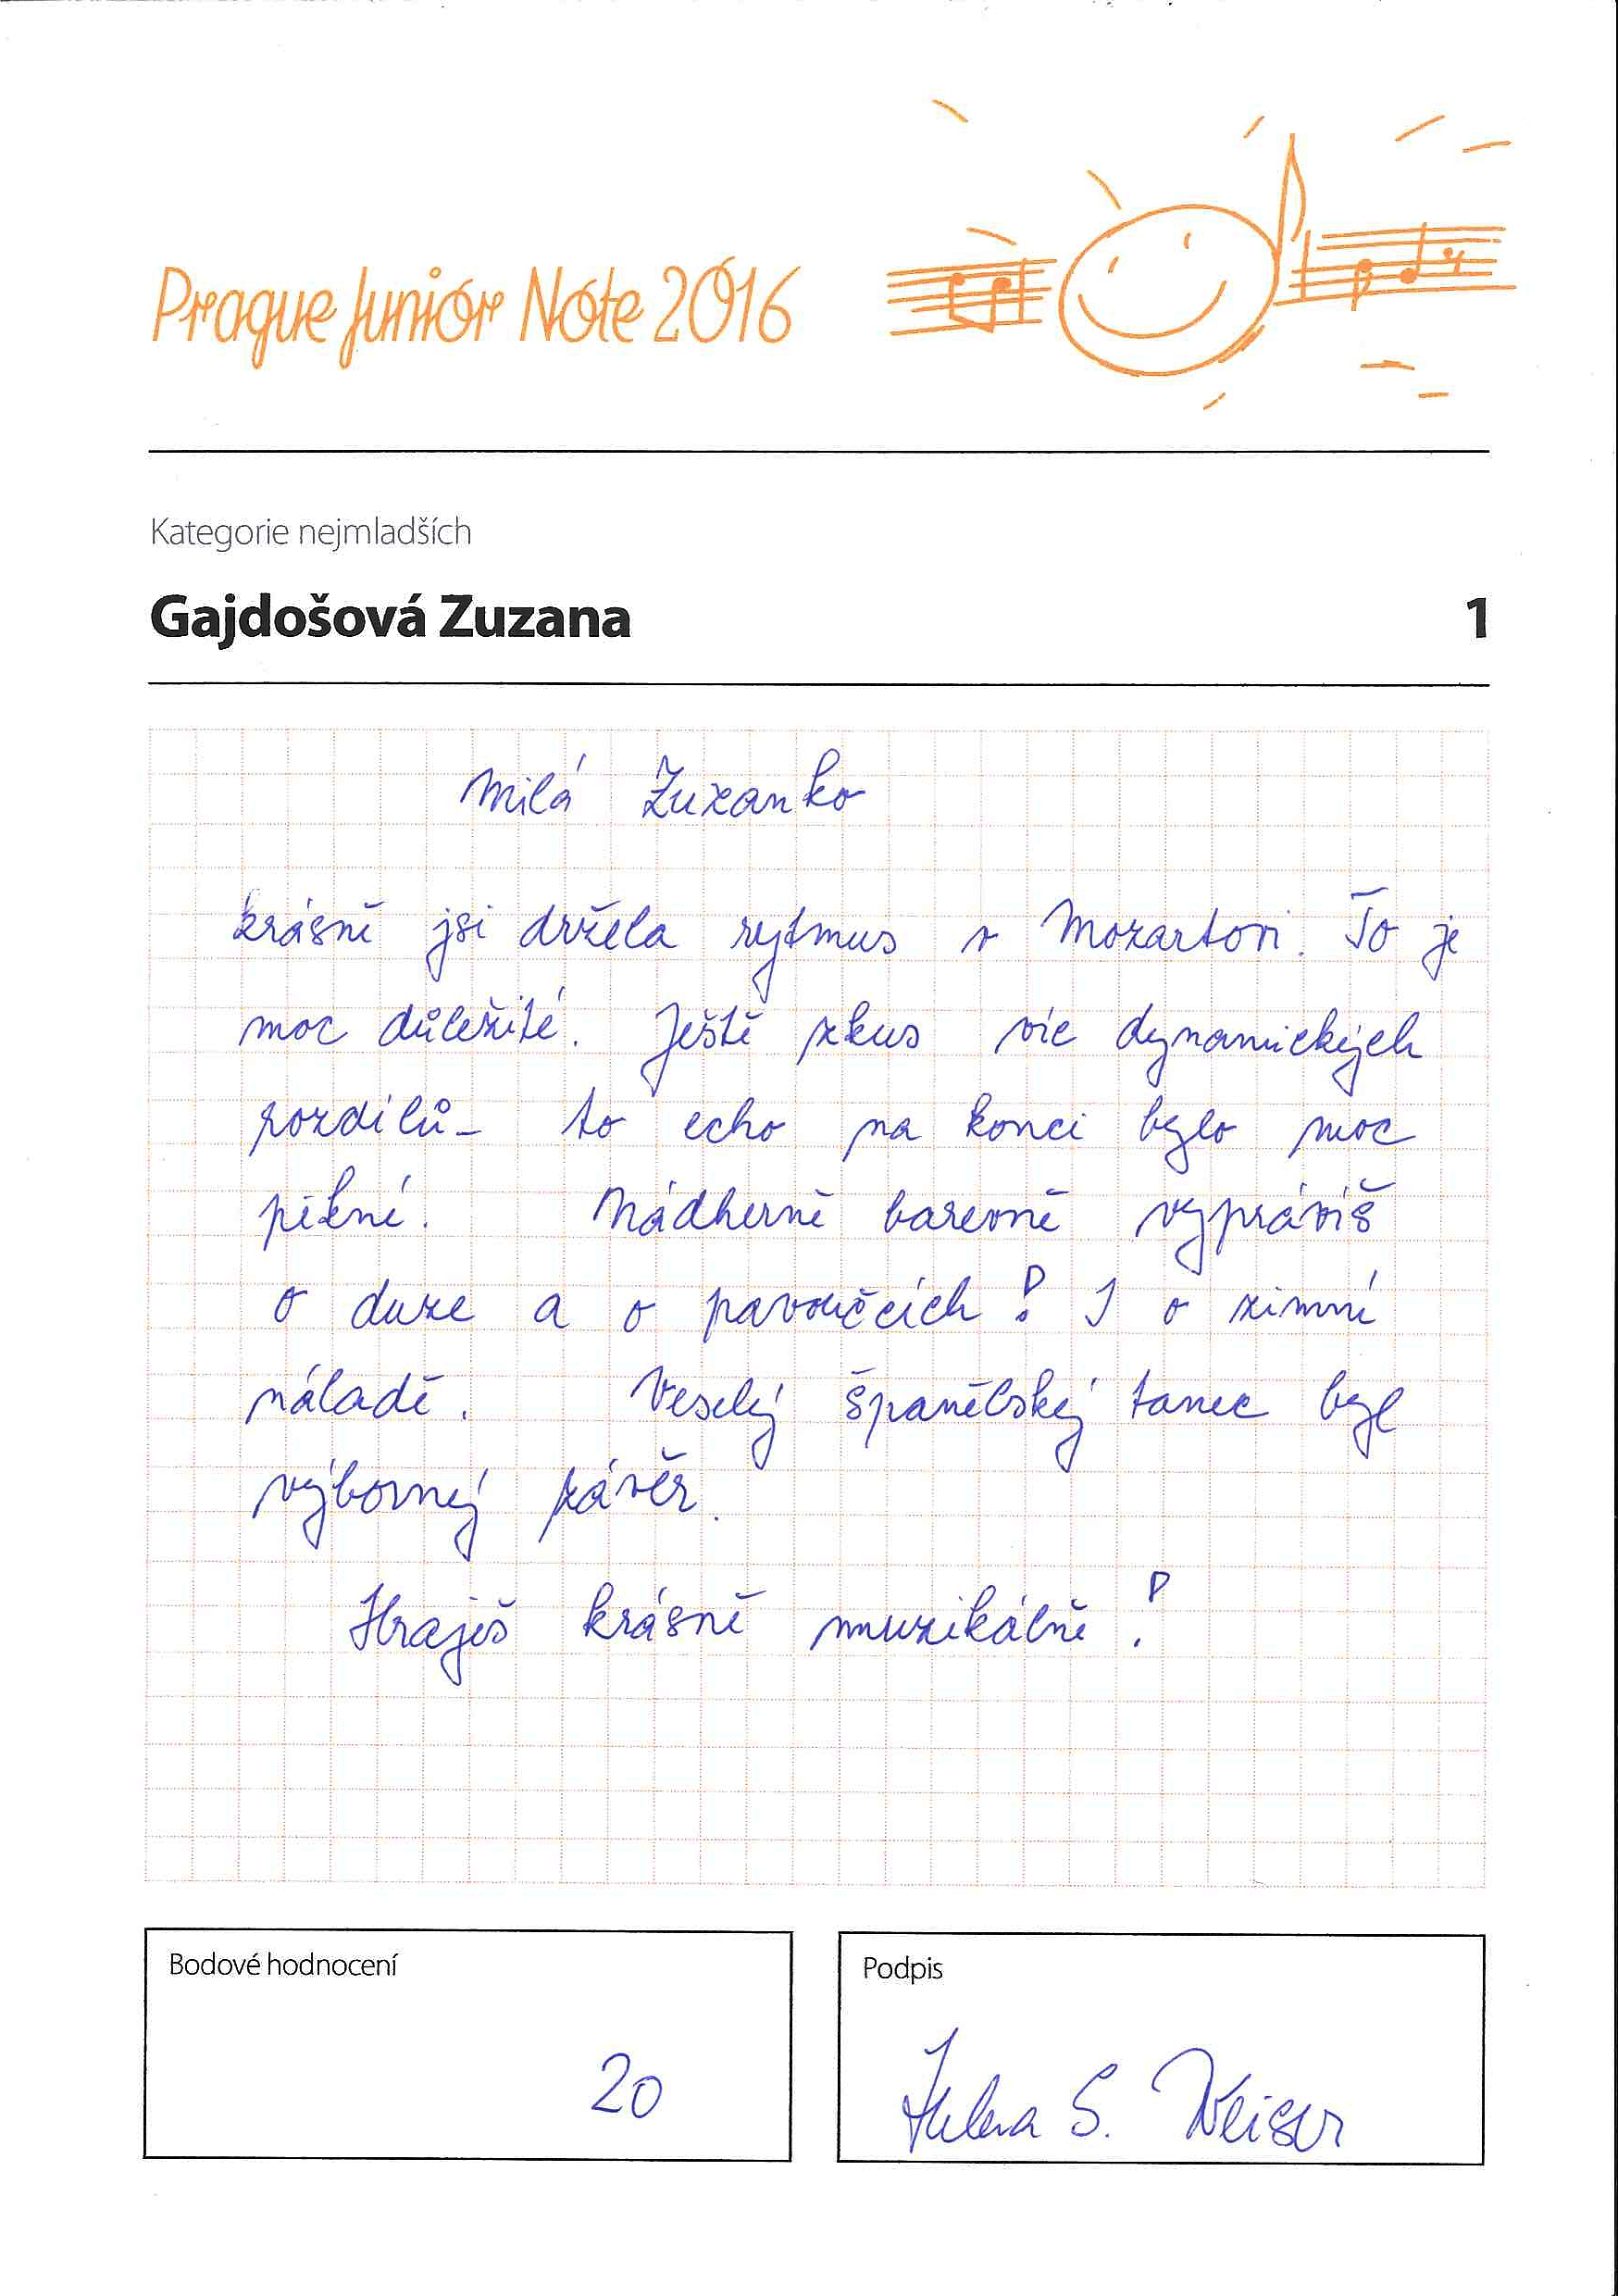 Prague Junior Note 2016
Kategorie nejmladších
Gajdošová Zuzana 1
Milá Zuzanko
krásně jsi držela rytmus v Mozartovi. To je
moc důležité. Ještě zkus víc dynamických
rozdílů - to echo na konci bylo moc
pěkné. Nádherně barevně vyprávíš
o duze a o pavoučcích! I o zimní
náladě. Veselý španělský tanec byl
výborný závěr.
Hraješ krásně muzikálně!
Bodové hodnocení
20
Podpis
Helena S. Weiser